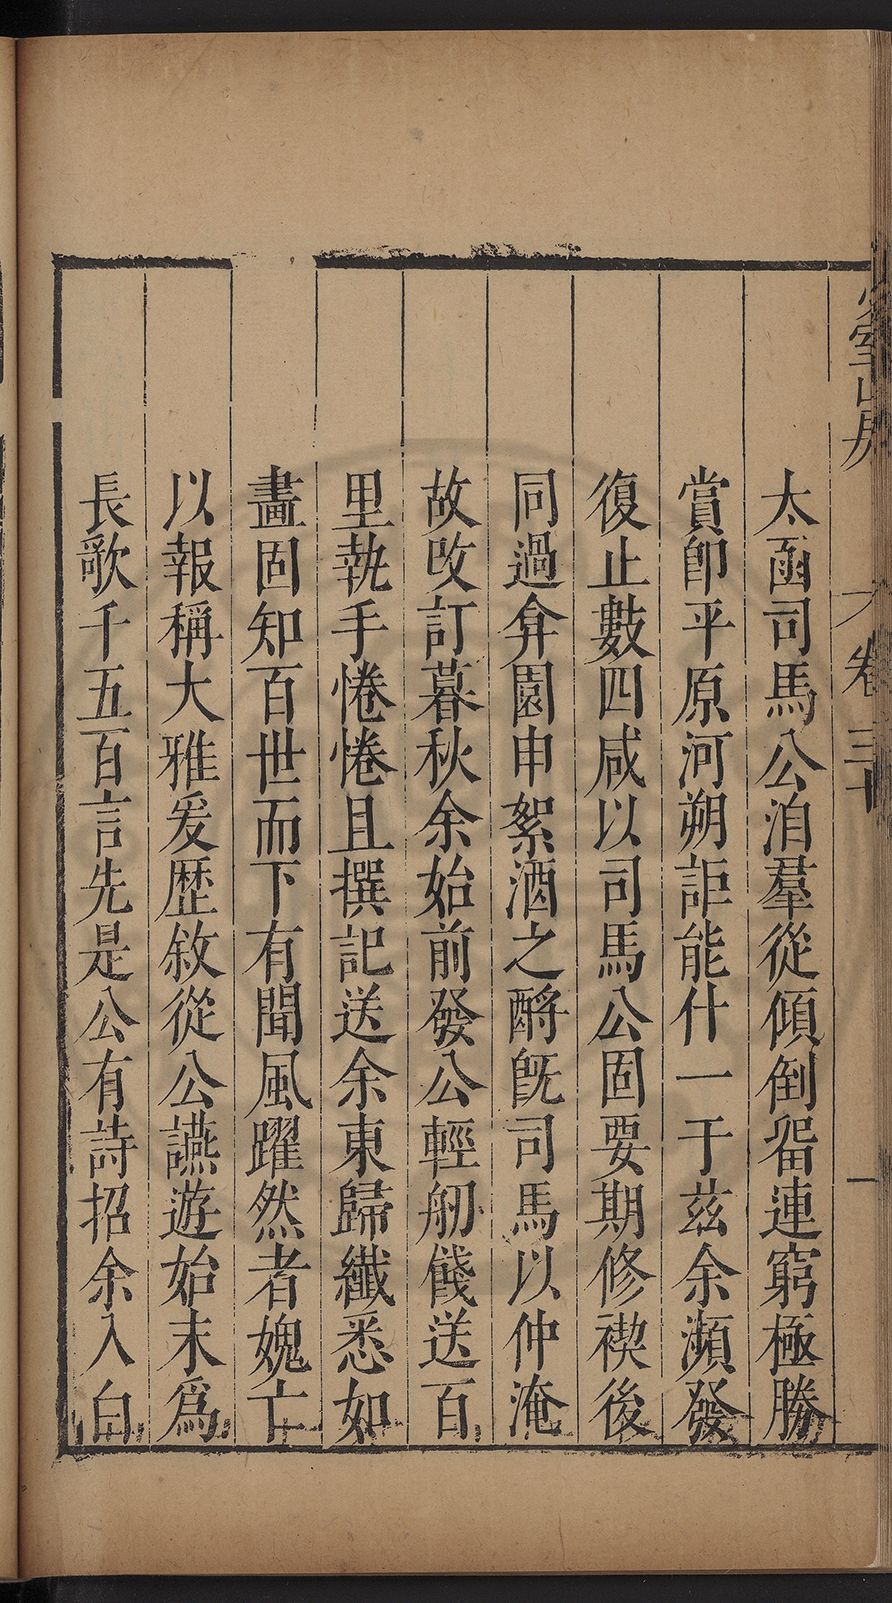 卷三十
一
太函司馬公洎羣從傾倒畱連窮極勝
賞卽平原河朔詎能什一于茲余瀕發
復止數四咸以司馬公固要期修禊後
同過弇園申絮酒之酹旣司馬以仲淹
故改訂暮秋余始前發公輕舠餞送百
里執手惓惓且撰記送余東歸纖悉如
畫固知百世而下有聞風躍然者媿亡
以報稱大雅爰歷敘從公讌遊始末爲
長歌千五百言先是公有詩招余入白